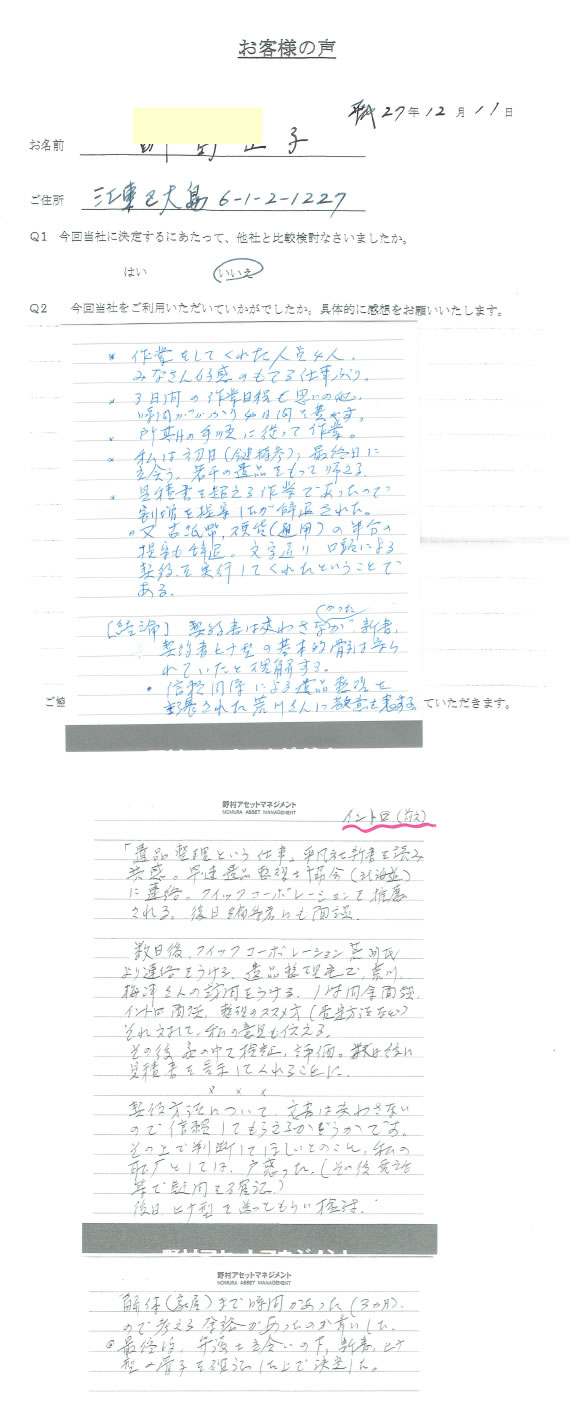 お客様の声
平成27年12月11日
お名前 子
ご住所 江東区大島6-1-2-1227
Q1 今回当社に決定するにあたって、他社と比較検討なさいましたか。
はい いいえ
Q2 今回当社をご利用いただいていかがでしたか。具体的に感想をお願いいたします。
* 作業をしてくれた人員4人、
みなさん好感のもてる仕事ぶり。
* 3日間の作業日程も思いの他、
時間がかかり4日間を費やす。
* 所期の手順に従って作業。
* 私は初日(鍵持参)、最終日に
立会う。若干の遺品をもって帰える。
* 見積書を超える作業であったので
割増を提案したが辞退された。
又古紙幣、硬貨(通用)の半分の
提案も辞退。文字通り口頭による
契約を実行してくれたということで
ある。
[結論] 契約書は交わさなかったが新書、
契約書ヒナ型の基本的骨子は守ら
れていたと理解する。
・信頼関係による遺品整理を
された荒川さんに敬意を表する。
ていただきます。
野村アセットマネジメント
NOMURA ASSET MANAGEMENT
イントロ(前文)
「遺品整理という仕事」平凡社新書を読み
共感。早速遺品整理士協会(北海道)
に連絡。クイックコーポレーションを推薦
される。後日編集者にも面談。
数日後、クイックコーポレーション荒川氏
より連絡をうける。遺品整理宅で、荒川、
さんの訪問をうける。1時間余面談。
イントロ面談、整理のススメ方(売買方法など)
それに対して、私の意見も伝える。
その後私の中で検証、評価。数日後に
見積書を呈示してくれることに。
× × ×
契約方法について、文書は交わさない
ので信頼してもらえるかどうかです。
その上で判断してほしいとのこと、私の
としては、戸惑った。(その後電話
等で疑問も確認)
後日、ヒナ型を送ってもらい検討。
野村アセットマネジメント
NOMURA ASSET MANAGEMENT
解体(家屋)まで時間があった(3ヵ月)。
ので考える余裕があったのが幸いした。
最終は、弁護士立会いの下、新書、ヒナ
型の骨子を確認した上で決定した。